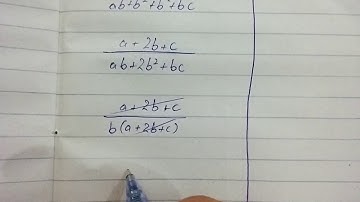 ab+b²+b²+bc
a+2b+c
ab+2b²+bc
a+2b+c
b(a+2b+c)